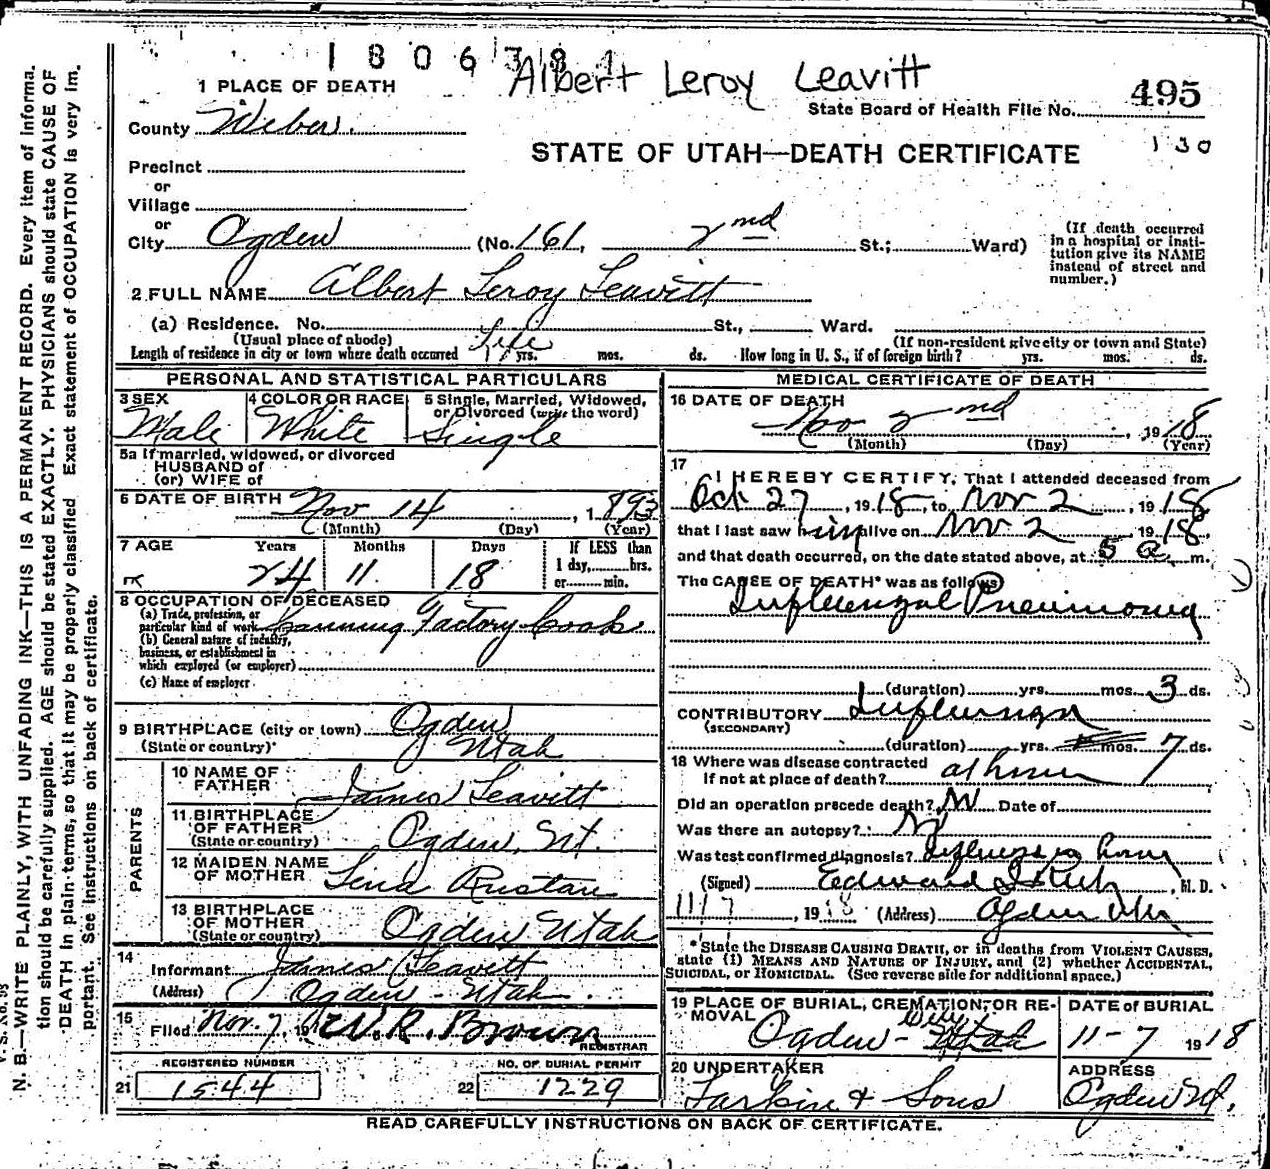 1806781
Albert Leroy Leavitt
1 PLACE OF DEATH
State Board of Health File No. 495
County Weber.
130
STATE OF UTAH—DEATH CERTIFICATE
Precinct
or
Village
or
City Ogden (No. 161, 2nd St.; Ward)
(If death occurred in a hospital or insti-
tution give its NAME instead of street and number.)
2 FULL NAME Albert Leroy Leavitt
(a) Residence. No. St., Ward.
(Usual place of abode) (If non-resident give city or town and State)
Length of residence in city or town where death occurred Life yrs. mos. ds. How long in U. S., if of foreign birth? yrs. mos. ds.
PERSONAL AND STATISTICAL PARTICULARS
3 SEX Male
4 COLOR OR RACE White
5 Single, Married, Widowed, or Divorced (write the word) Single
5a If married, widowed, or divorced
HUSBAND of
(or) WIFE of
6 DATE OF BIRTH Nov 14, 1893
(Month) (Day) (Year)
7 AGE Years Months Days If LESS than
24 11 18 1 day, hrs.
or min.
8 OCCUPATION OF DECEASED
(a) Trade, profession, or
particular kind of work Canning Factory Cook
(b) General nature of industry,
business, or establishment in
which employed (or employer)
(c) Name of employer
9 BIRTHPLACE (city or town) Ogden
(State or country) Utah
PARENTS
10 NAME OF FATHER James Leavitt
11 BIRTHPLACE OF FATHER (State or country) Ogden, Ut.
12 MAIDEN NAME OF MOTHER Lena
13 BIRTHPLACE OF MOTHER (State or country) Ogden Utah
14 Informant James Leavitt
(Address) Ogden - Utah.
15 Filed Nov. 7, 19 W. R. Brown
REGISTRAR
REGISTERED NUMBER
21 1544
NO. OF BURIAL PERMIT
22 1229
MEDICAL CERTIFICATE OF DEATH
16 DATE OF DEATH
Nov 2nd, 1918
(Month) (Day) (Year)
17
I HEREBY CERTIFY, That I attended deceased from
Oct 27, 1918, to Nov 2, 1918
that I last saw him alive on Nov 2 1918,
and that death occurred, on the date stated above, at 5 a m.
The CAUSE OF DEATH* was as follows
Influenzal Pneumonia
(duration) yrs. mos. 3 ds.
CONTRIBUTORY Influenza
(SECONDARY)
(duration) yrs. mos. 7 ds.
18 Where was disease contracted
if not at place of death? at home
Did an operation precede death? No Date of
Was there an autopsy? No
Was test confirmed diagnosis?
(Signed) Edward I Rich, M. D.
11/7, 1918 (Address) Ogden Utah
*State the DISEASE CAUSING DEATH, or in deaths from VIOLENT CAUSES,
state (1) MEANS AND NATURE OF INJURY, and (2) whether ACCIDENTAL,
SUICIDAL, or HOMICIDAL. (See reverse side for additional space.)
19 PLACE OF BURIAL, CREMATION, OR RE-
MOVAL Ogden - City Utah
DATE OF BURIAL
11-7 1918
20 UNDERTAKER
Larkin & Sons
ADDRESS
Ogden Ut.
READ CAREFULLY INSTRUCTIONS ON BACK OF CERTIFICATE.
N. B.—WRITE PLAINLY, WITH UNFADING INK—THIS IS A PERMANENT RECORD. Every item of informa-
tion should be carefully supplied. AGE should be stated EXACTLY. PHYSICIANS should state CAUSE OF
DEATH in plain terms, so that it may be properly classified. Exact statement of OCCUPATION is very im-
portant. See instructions on back of certificate.